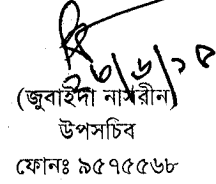 ২৬/৬/১৫
(জুবাইদা নাসরীন)
উপসচিব
ফোনঃ ৯৫৭৫৫৬৮